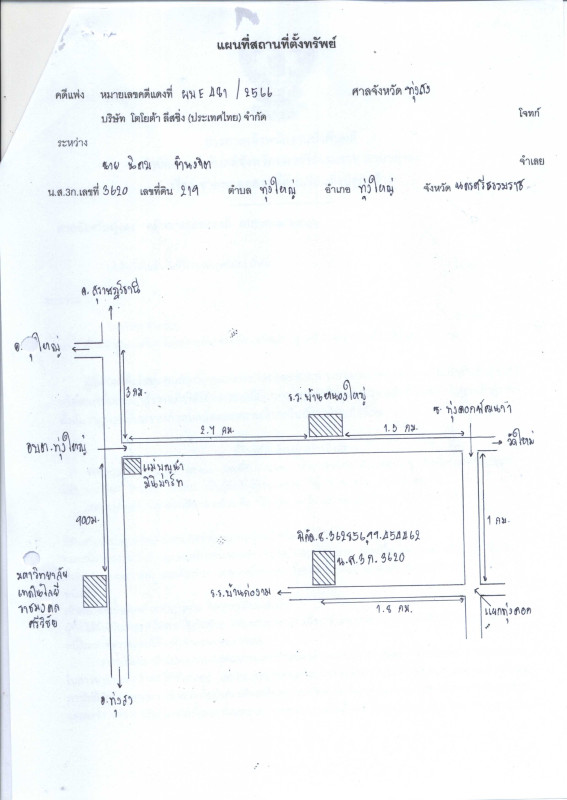 แผนที่สถานที่ตั้งทรัพย์
คดีแพ่ง หมายเลขคดีแดงที่ ผบE 481 / 2566 ศาลจังหวัด ทุ่งสง
บริษัท โตโยต้า ลีสซิ่ง (ประเทศไทย) จำกัด โจทก์
ระหว่าง
นาย นิคม จำเลย
น.ส.3ก.เลขที่ 3620 เลขที่ดิน 219 ตำบล ทุ่งใหญ่ อำเภอ ทุ่งใหญ่ จังหวัด นครศรีธรรมราช
จ. สุราษฎร์ธานี
อ. ทุ่งใหญ่
3 กม.
ร.ร. บ้านหนองใหญ่
2.7 กม.
1.3 กม.
อบต. ทุ่งใหญ่
วัดใหม่
แม่บุญนำ
มินิมาร์ท
400ม.
1 กม.
พิกัด 8.362856,99.454462
น.ส.3 ก. 3620
มหาวิทยาลัย
เทคโนโลยี
ราชมงคล
ศรีวิชัย
ร.ร.บ้านก่องาม
1.8 กม.
อ.ทุ่งสง